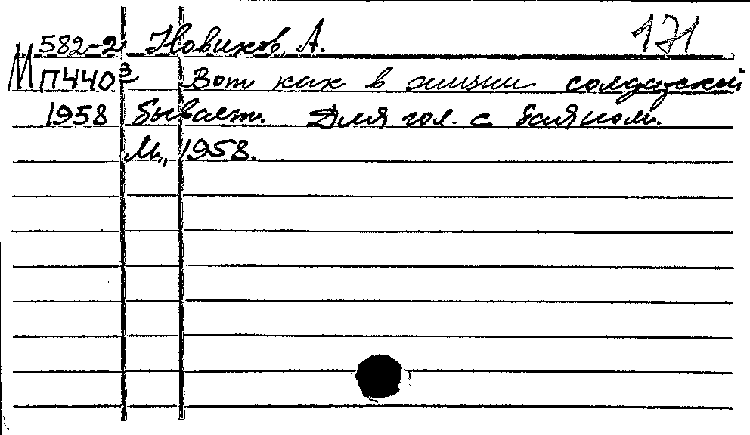 582-2 Новиков, А. 171
М П440³ Вот как в жизни солдатской
1958 бывает. Для гол. с баяном.
М., 1958.